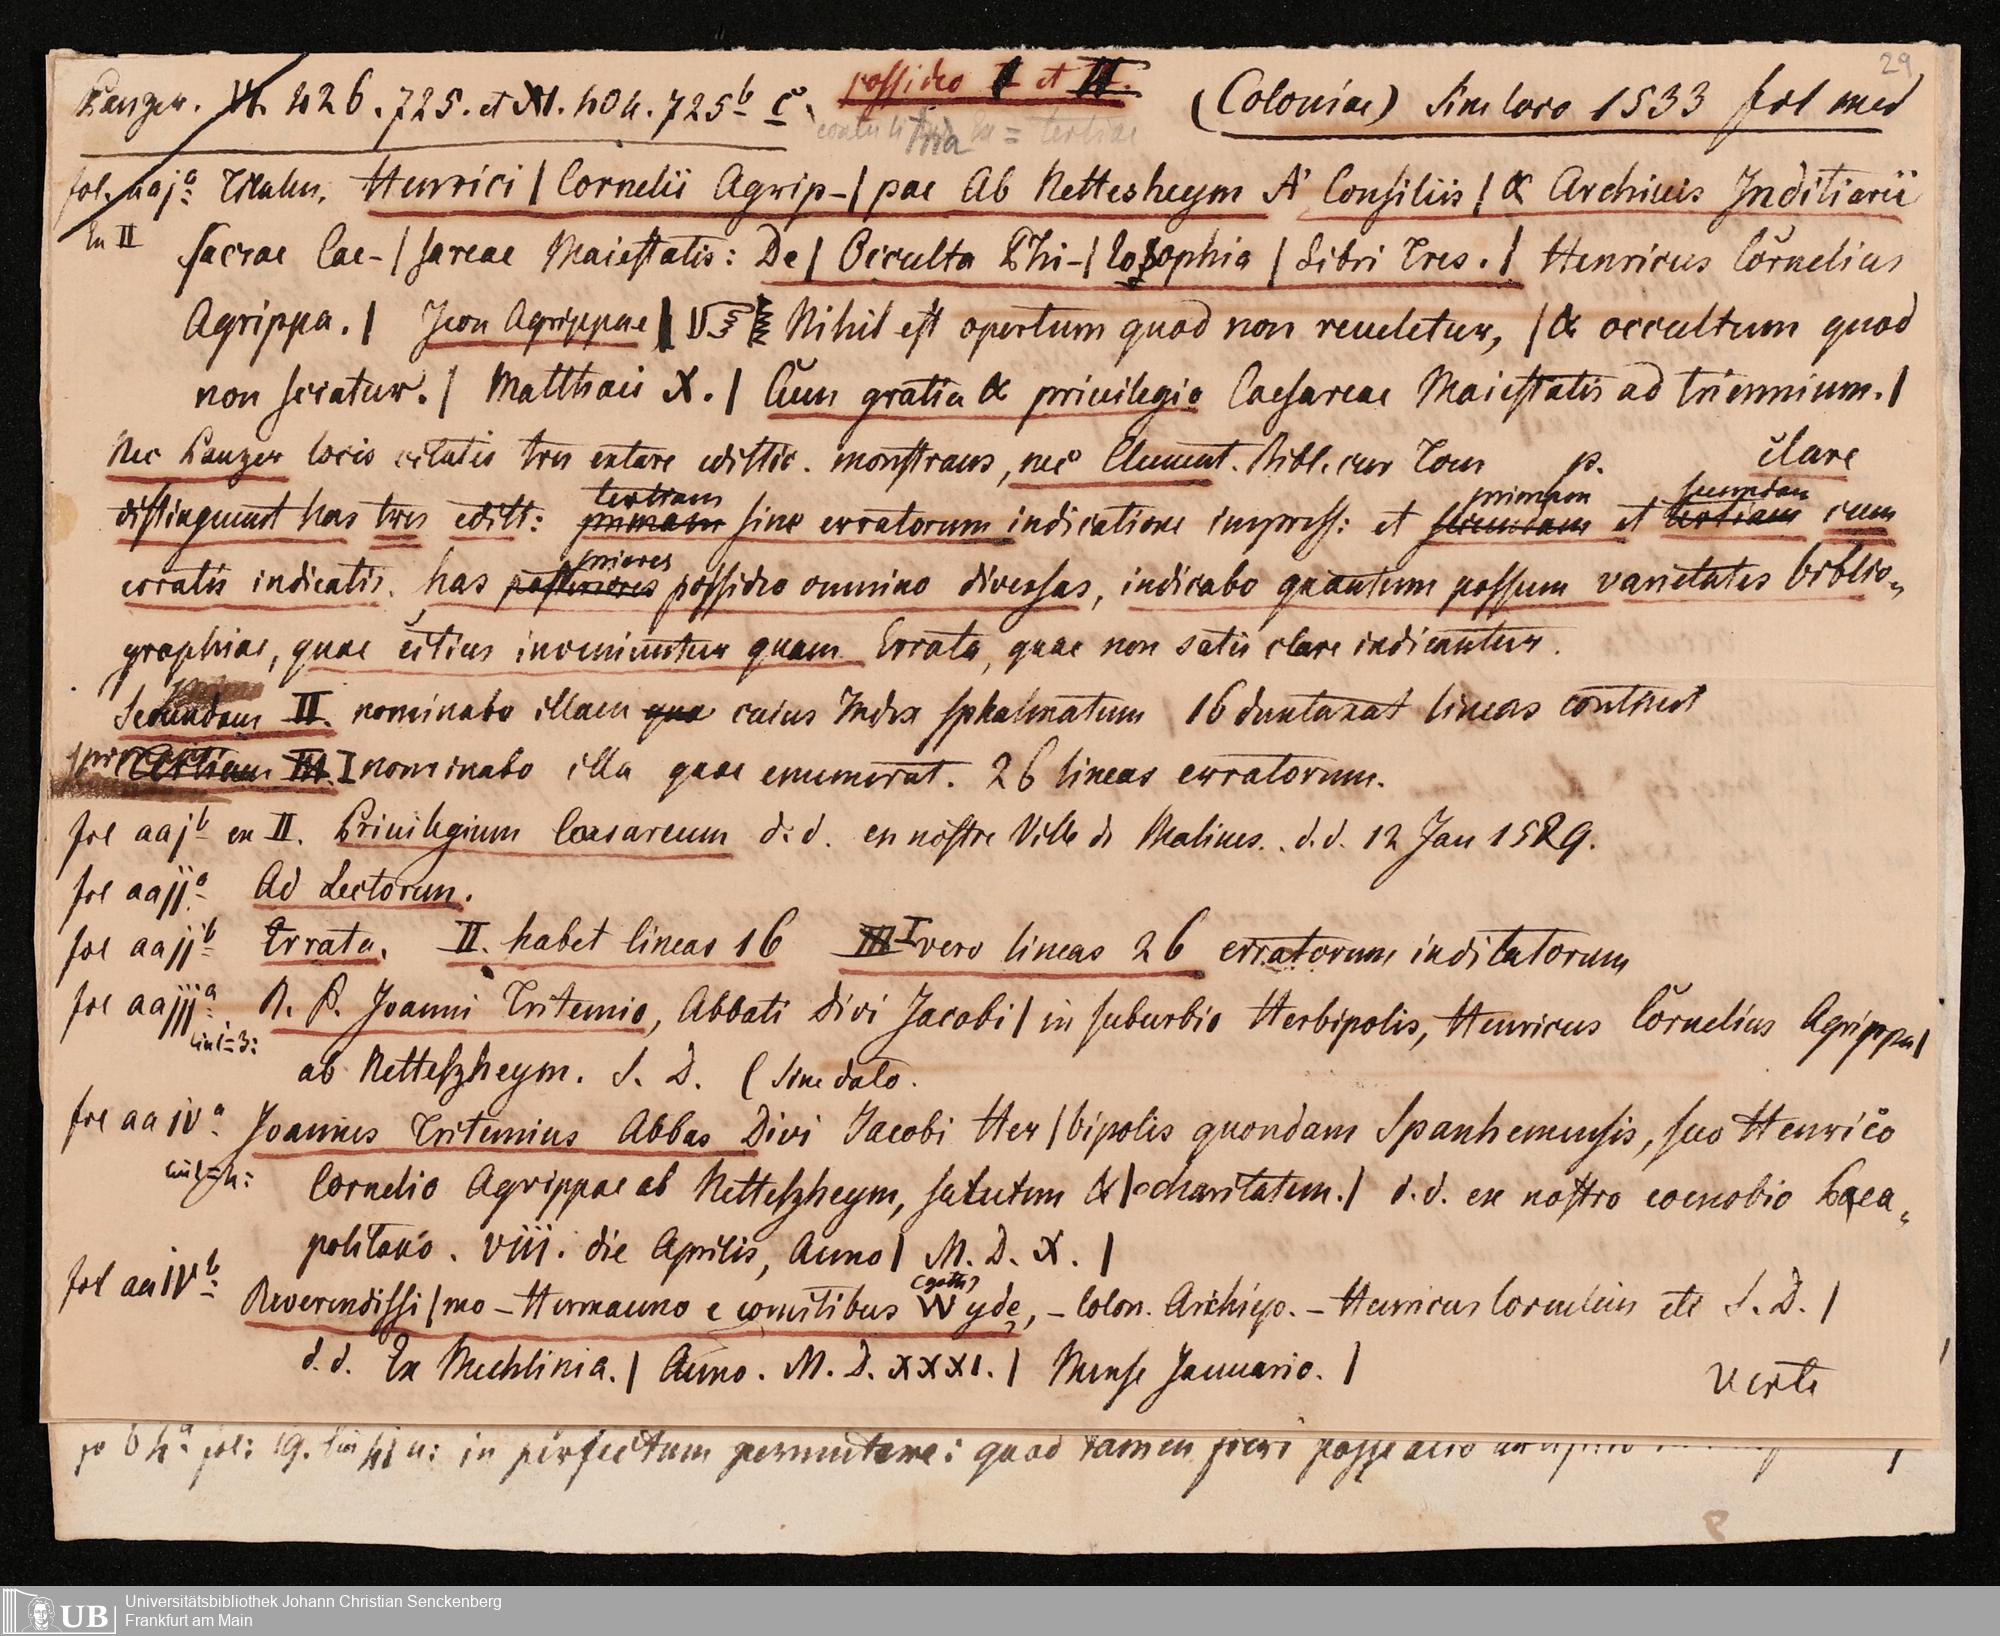 29
Panzer. VI. 426. 725. et XI. 404. 725b c. possideo I et II. (Coloniae) Sine loco 1533 fol med
tertiae
fol. aaja Titulus. Henrici | Cornelii Agrip-| pae Ab Nettesheym A' Consiliis | & Archivis Inditiarii
En II Sacrae Cae-| sareae Maiestatis: De | Occulta Phi-| losophia | Libri Tres. | Henricus Cornelius
Agrippa. | Icon Agrippae | Nihil est opertum quod non reueletur, | & occultum quod
non sciatur. | Matthaei X. | Cum gratia & priuilegio Caesareae Maiestatis ad triennium. |
Nec Panzer locis citatis tres extare monstrans, nec Clement. Bibl. cur Tom p. clare
distinguunt has tres editt: primam tertiam sine erratorum indicatione impress: et secundam primam et tertiam secundam cum
erratis indicatis. has posteriores priores possideo omnino diversas, indicabo quantum possum varietates biblio-
graphiae, quae citius inveniuntur quam Errata, quae non satis clare indicantur.
Secundam II. nominabo illam quae cuius Index sphalmatum 16 duntaxat lineas continet
primam tertiam III. I nominabo illa quae enumerat. 26 lineas erratorum.
fol aajb en II. Priuilegium Caesareum d. d. en nostre Ville de Malines. d. d. 12 Jan 1529.
fol aajja Ad Lectorem.
fol aajjb Errata. II. habet lineas 16 III I vero lineas 26 erratorum indicatorum
fol aajjja R. P. Joanni Tritemio, Abbati Divi Jacobi | in suburbio Herbipolis, Henricus Cornelius Agrippa |
lin:=3: ab Netteszheym. S. D. (sine dato.
fol aa iva Joannes Tritemius Abbas Divi Jacobi Her | bipolis quondam Spanhemensis, suo Henrico
lin:=4: Cornelio Agrippae ab Netteszheym, salutem & | charitatem. | d. d. ex nostro coenobio Paea-
politano. viii. die Aprilis, Anno | M. D. X. |
(goth)
fol aa IVb Reverendissi | mo - Hermanno e comitibus Wyde, - Colon. Archiep. - Henricus Cornelius etc S. D. |
d. d. Ex Mechlinia. | Anno. M. D. XXXI. | Mense Januario. |
verte
fol: 19. in perfectum permutare: quod tamen fieri posse
Universitätsbibliothek Johann Christian Senckenberg
UB Frankfurt am Main